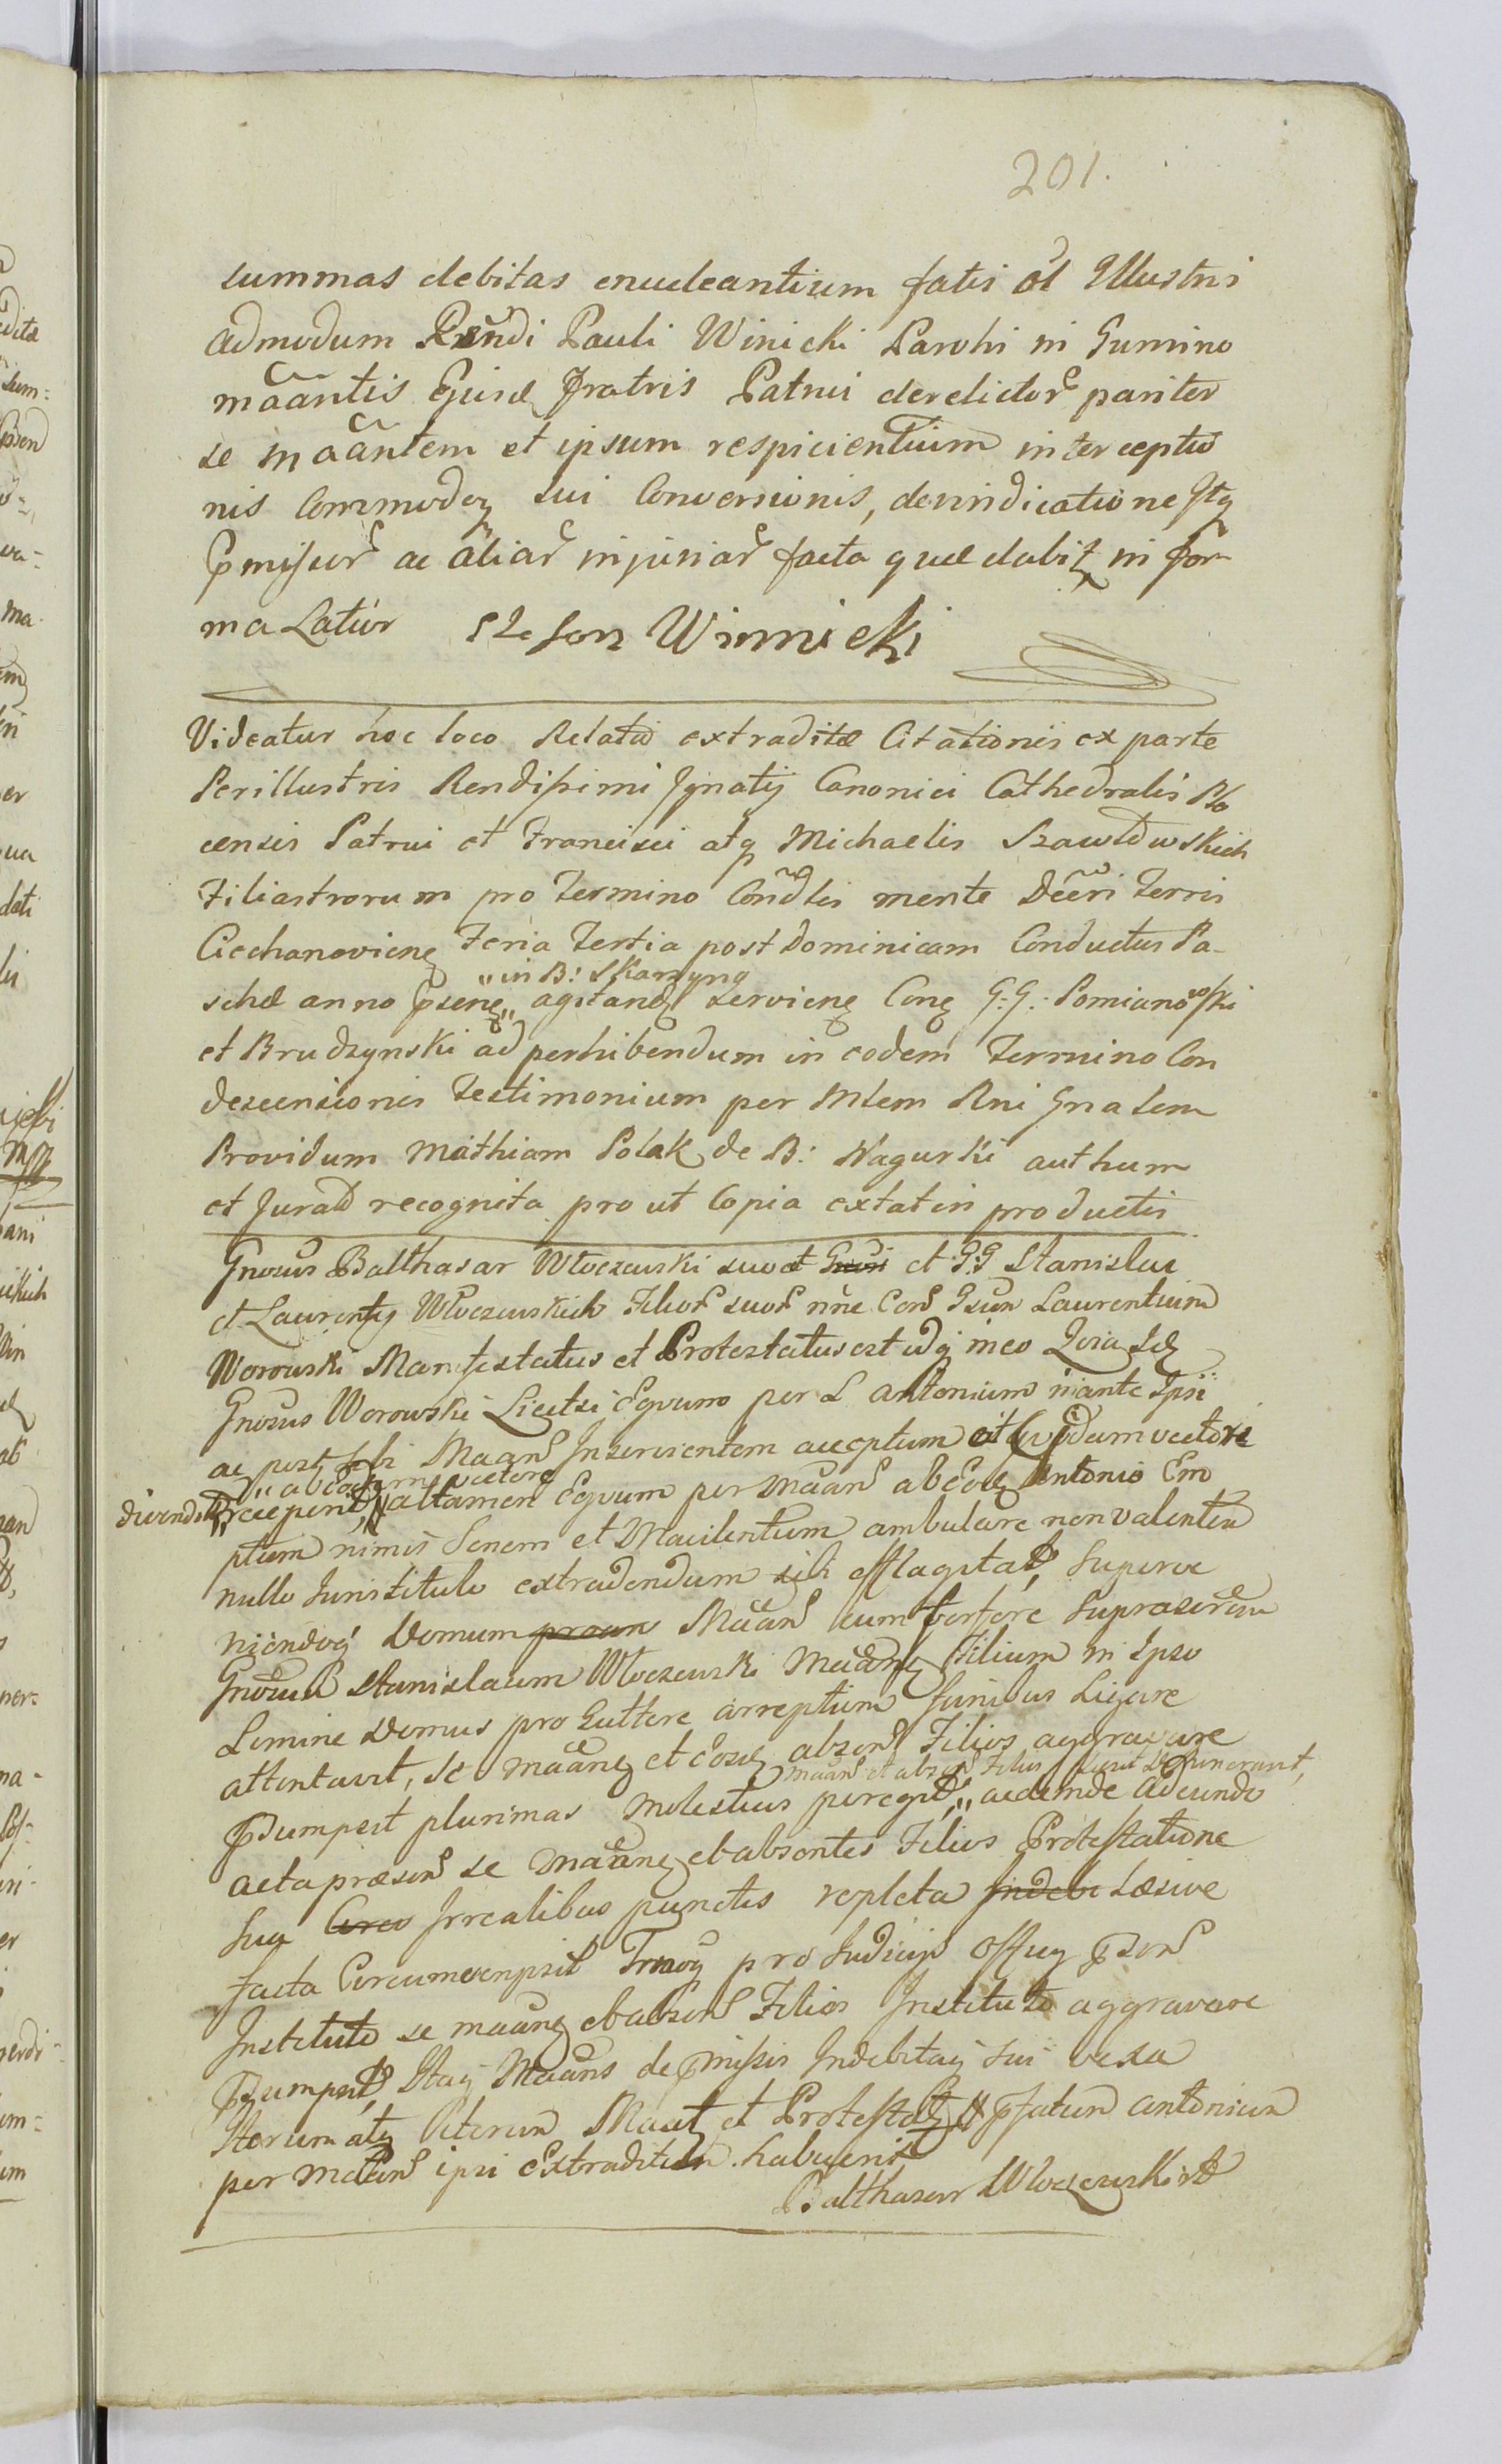 201.
summas debitas enucleantium fatis ol Illustris
admodum Rendi Pauli Winicki Parohi in Gumino
mãantis Ejusd Fratris Patrui derelictor pariter
se mãantem et ipsum respicientium interceptio
nis Commodoq sui Conversionis, devindicatione Itq
Pmissor ac aliar injuriar facta quæ dabit in for
ma Latior Winnicki
Videatur hoc loco Relatio extraditæ Citationis ex parte
Perillustris Rendissimi Ignatij Canonici Cathedralis Plo
censis Patrui et Francisci atq Michaelis Szawłowskich
Filiastrorum pro Termino Condlis mente Decri Terris
Ciechanoviens Feria Tertia post Dominicam Conductus Pa-
"in B: Skarzyno
schæ anno Psene" agitand serviens Cone G:G: Pomianowski
et Brudzynski ad perhibendum in eodem Termino Con
descensionis Testimonium per Mlem Rni Gnalem
Providum Mathiam Polak de B: Nagurki authum
et Jurato recognita pro ut Copia extat in productis
Gnosus Balthasar Włoczewski suo et et G:G Stanislai
et Laurentij Włoczewskich Filior suor nñe Con Gsum Laurentium
Worowski Manifestatus et Protestatus est idq in eo Quia Id
Gnosus Worowski Licet si Equum per L Antonium
ac post Maans Inservientem acceptum vectore
"ab eodem vectore
receperit, attamen Equum per Maans ab Eod Antonio Em
ptum nimis Senem et Macilentum ambulare non valentem
nullo Juris titulo extradendum sibi efflagitat, Superve
niendoq Domum Maans cum fortiore Suprascrem
Gnosum Stanislaum Włoczewski Maans Filium in Ipso
Limine Domus pro Guttere arreptum funibus Ligare
attentavit, se maans et eosd absens Filios aggravare
maans et absens Filii
Psumpsit plurimas molestias peregit," ac deinde adeundo
acta præsens se Maans et absentes Filios Protestatione
sua Irrealibus punctis repleta Læsive
facta Circumscripsit pro Judicijs Officij Psens
Instituto se maans et absens Filios Instituto aggravare
Psumpsit, Itaq Maans de Pmissis Indebitaq sui vexa
Iterum atq Iterum Maat et Protestat Pfatum Antonium
per Maans ipsi Extraditum habuerit
Balthaser Włoczewski